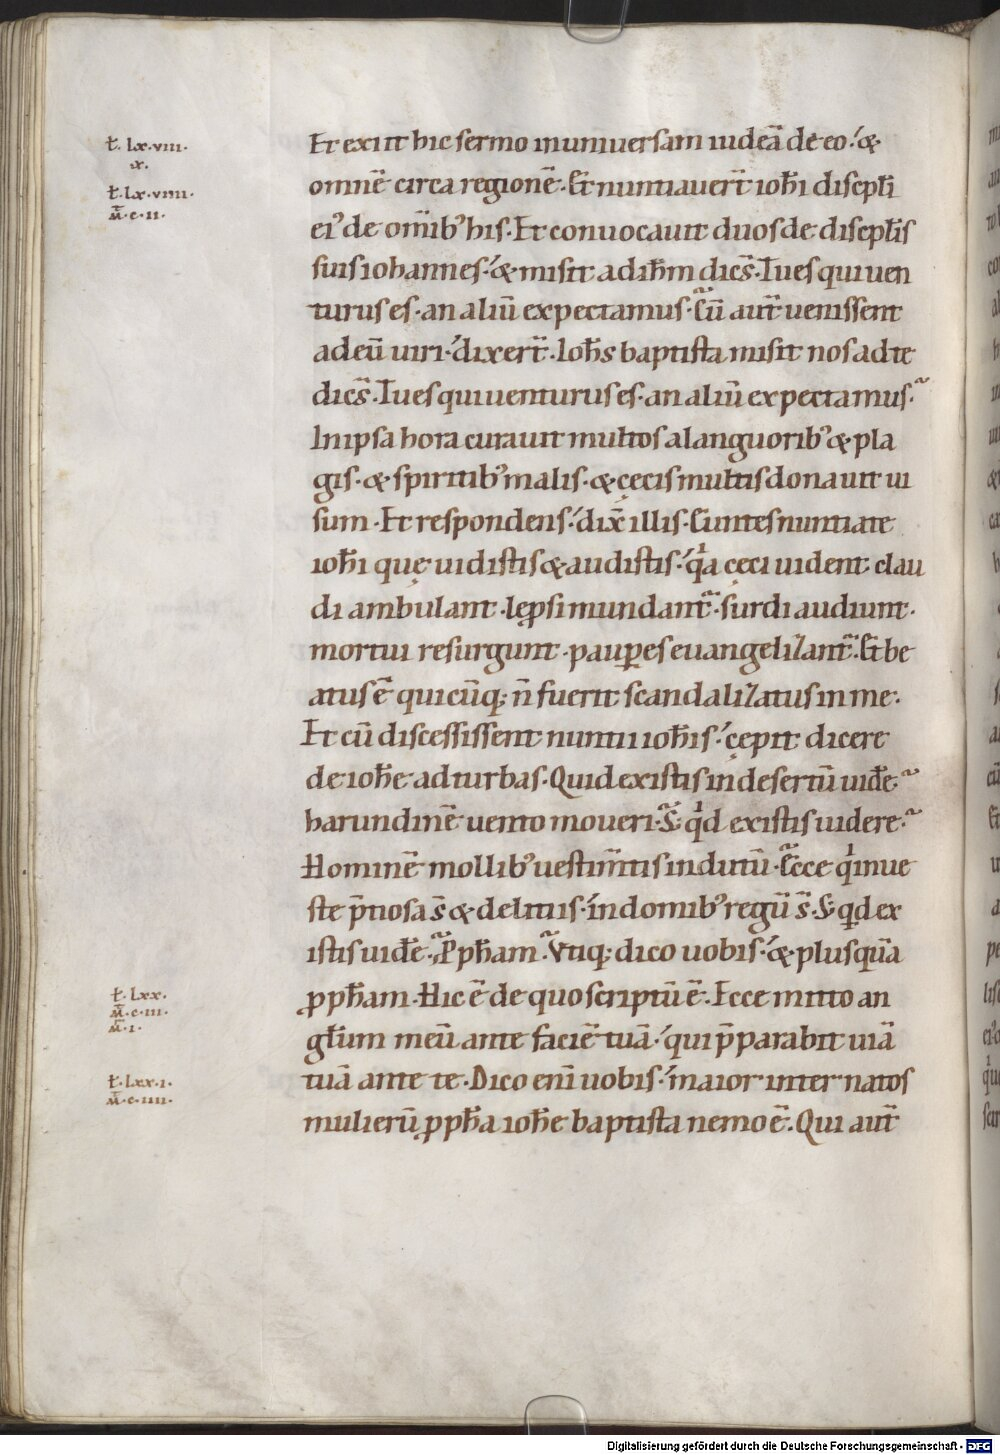 ł. lx.viii.
x.
ł. lx.viiii.
m̄.c.ii.
Et exiit hic sermo in uniuersam iudeā de eo. &
omnē circa regionē. Et nuntiauer̄t ioh̄i discipl̄i
ei᾿ de om̄ib᾿ his. Et conuocauit duos de discipl̄is
suis iohannes. & misit ad ih̄m dicēs. Tu es qui uen
turus es. an aliū expectamus. Cū aut̄ uenissent
ad eū uiri. dixer̄t. Ioh̄s baptista misit nos ad te
dicēs. Tu es qui uenturus es. an aliū expectamus.
In ipsa hora curauit multos a languorib᾿ & pla
gis. & spiritib᾿ malis. & cęcis multis donauit ui
sum. Et respondens. dix̄ illis. Euntes nuntiate
ioh̄i quę uidistis & audistis. qͥa cęci uident. clau
di ambulant. lep̱si mundant̄. surdi audiunt.
mortui resurgunt. paup̱es euangelizant̄. Et be
atus ē quicūq; n̄ fuerit scandalizatus in me.
Et cū discessissent nuntii ioh̄is. cępit dicere
de ioh̄e ad turbas. Quid existis in desertū uid̄e
harundinē uento moueri. S; qͥd existis uidere
Hominē mollib᾿ uestim̄tis indutū. Ecce qͥ in ue
ste p̄tiosa s̄ & delitiis. in domib᾿ regū s̄. S; qͥd ex
istis uid̄e. P̱ph̄am. Vtiq; dico uobis. & plus quā
ł. lxx.
p̱ph̄am. Hic ē de quo scriptū ē. Ecce mitto an
m̄.c.iii.
m̄.i.
gl̄um meū ante faciē tuā. qui p̄parabit uiā
ł. lxx.i.
tuā ante te. Dico eni᷄ uobis. maior inter natos
m̄.c.iiii.
mulierū p̱ph̄a ioh̄e baptista nemo ē. Qui aut̄
Digitalisierung gefördert durch die Deutsche Forschungsgemeinschaft - DFG